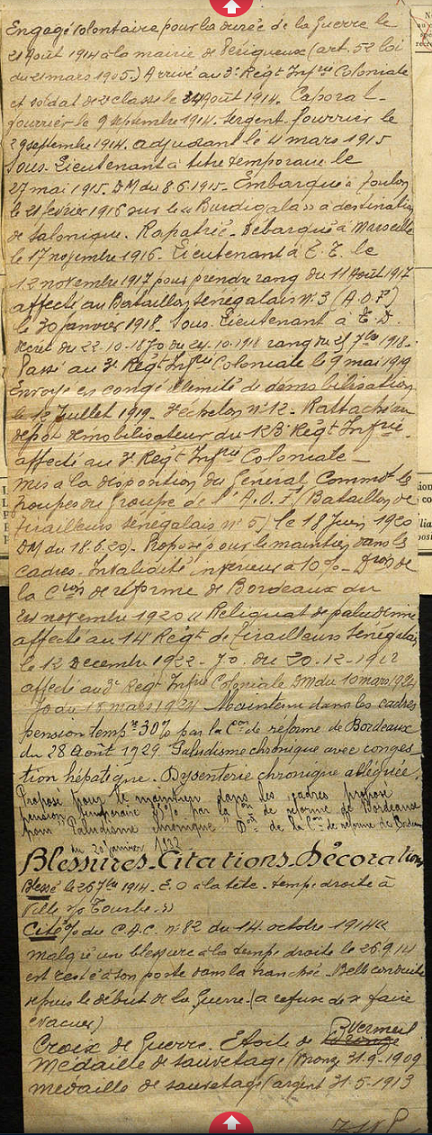 Engagé volontaire pour la durée de la Guerre le
21 Août 1914 à la mairie de Périgueux (art. 52 loi
du 21 mars 1905.) Arrivé au 3e Régt Infrie Coloniale
et soldat de 2e classe le 24 Août 1914. Caporal
fourrier le 9 septembre 1914. Sergent fourrier le
29 septembre 1914. adjudant le 11 mars 1915
Sous. Lieutenant à titre temporaire le
27 mai 1915. DM du 8.6.1915. Embarqué à Toulon
le 21 février 1916 sur le "Burdigala" à destination
de Salonique. Rapatrié. Débarqué à Marseille
le 17 novembre 1916. Lieutenant à T. T. le
12 novembre 1917 pour prendre rang du 11 Août 1917
affecté au Bataillon Sénégalais n° 3 (A.O.F)
le 30 janvier 1918. Sous. Lieutenant à T. D.
Décret du 22.10.1870 du 24.10.1918 rang du 25 7bre 1918.
Passé au 3e Régt Infrie Coloniale le 9 mai 1919
Envoyé en congé illimité de démobilisation
le 12 Juillet 1919. échelon n° 12. Rattaché au
dépôt démobilisateur du 123e Régt Infrie
affecté au 3e Régt Infrie Coloniale
mis à la disposition du Général Commdt les
troupes du Groupe de l'A.O.F (Bataillon de
tirailleurs sénégalais n° 5) le 18 Juin 1920
DM du 18.6.20). Proposé pour le maintien dans les
cadres. Invalidité inférieure à 10% - Don de
la Con de réforme de Bordeaux du
24 novembre 1920 "Reliquat de paludisme
affecté au 14 Régt de Tirailleurs Sénégalais
le 12 Décembre 1922 - J.O. du 20.12.1922
affecté au 3e Régt Infrie Coloniale DM du 10 mars 1924
JO du 18 mars 1924 Maintenu dans les cadres
pension tempre 30% par la Con de réforme de Bordeaux
du 28 Août 1929 Paludisme chronique avec conges
tion hépatique. Dysenterie chronique
Proposé pour le maintien dans les cadres proposé
pension temporaire % par la Con de réforme de Bordeaux
pour Paludisme chronique Don de la Con de réforme de
du 20 janvier
Blessures - Citations - Décorations
Blessé le 26 7bre 1914. E.O à la tête - tempe droite à
Ville s/s Tourbe.
Cité O/ du C.A.C. n° 82 du 14. octobre 1914 "
malgré une blessure à la tempe droite le 26.9.14
est resté à son poste dans la tranchée. Belle conduite
depuis le début de la Guerre. (a refusé de se faire
évacuer)
Croix de Guerre. Etoile de Vermeil
Médaille de sauvetage (Bronze 31.9.1909
médaille de sauvetage (argent 31.5.1913